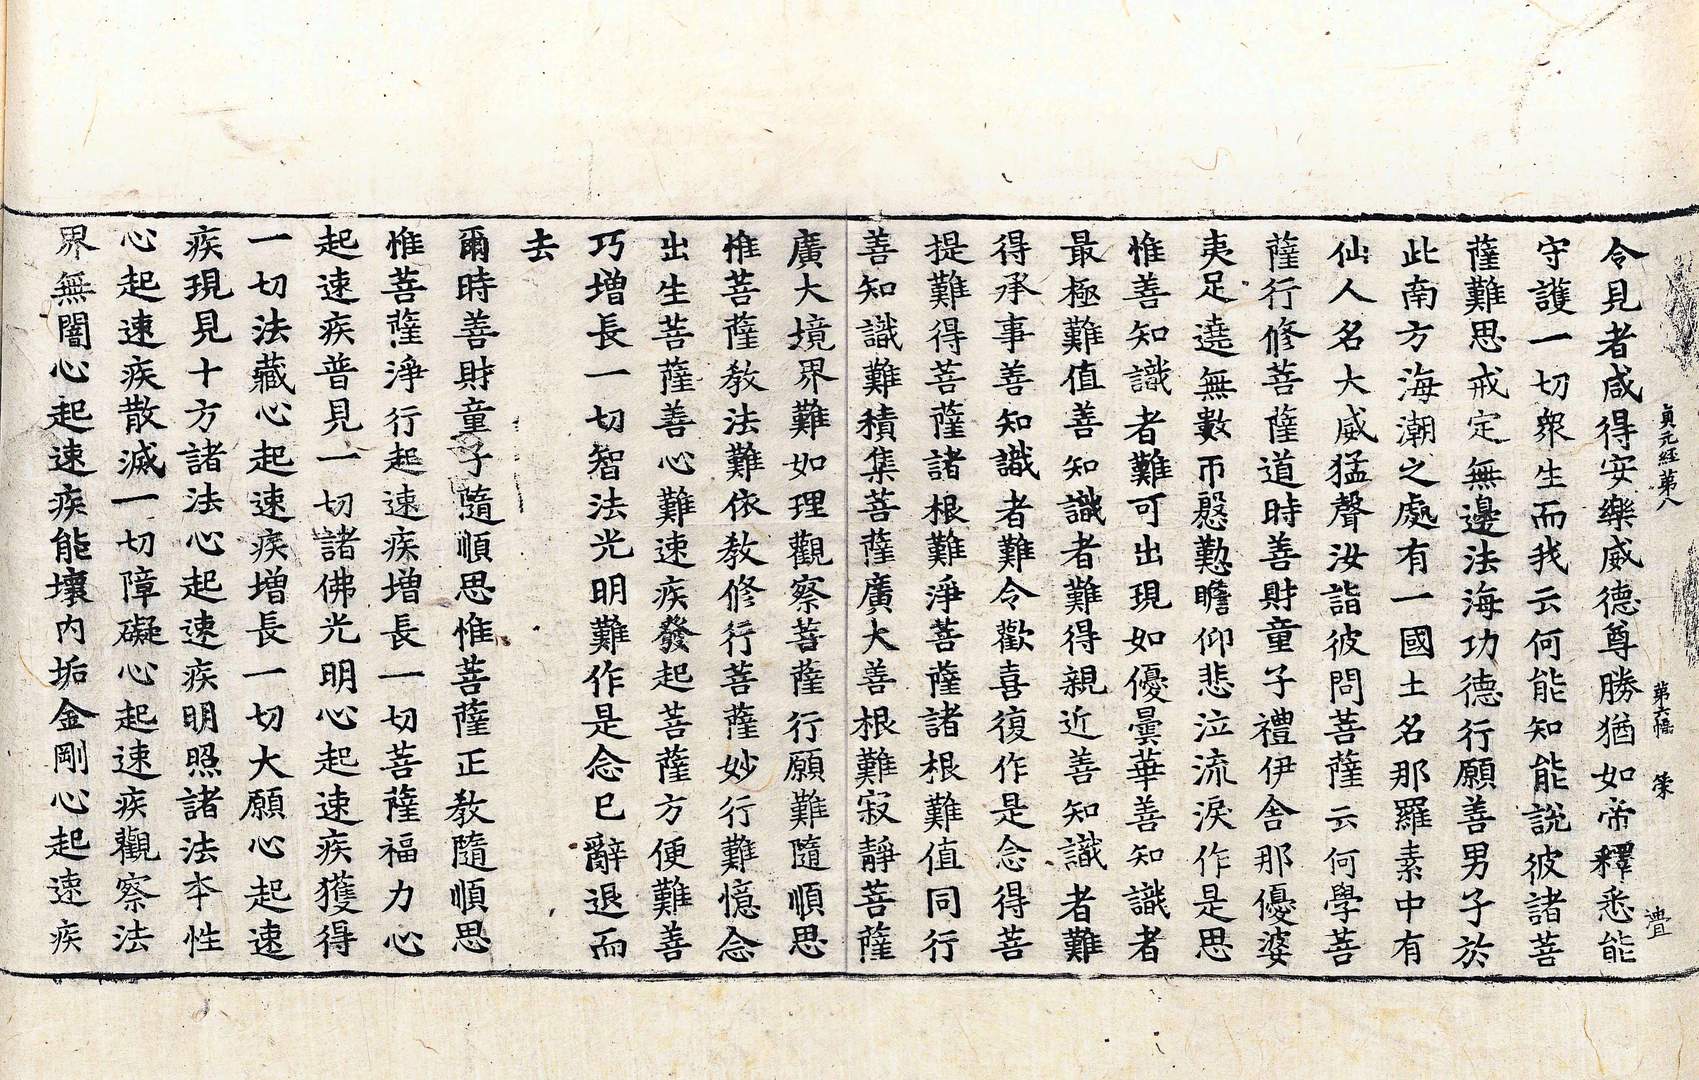 貞元經第八 第六幅 策 疊
令見者咸得安樂威德尊勝猶如帝釋悉能
守護一切衆生而我云何能知能說彼諸菩
薩難思戒定無邊法海功德行願善男子於
此南方海潮之處有一國土名那羅素中有
仙人名大威猛聲汝詣彼問菩薩云何學菩
薩行修菩薩道時善財童子禮伊舍那優婆
夷足遶無數帀慇懃瞻仰悲泣流淚作是思
惟善知識者難可出現如優曇華善知識者
最極難值善知識者難得親近善知識者難
得承事善知識者難令歡喜復作是念得菩
提難得菩薩諸根難淨菩薩諸根難值同行
善知識難積集菩薩廣大善根難寂靜菩薩
廣大境界難如理觀察菩薩行願難隨順思
惟菩薩教法難依教修行菩薩妙行難憶念
出生菩薩善心難速疾發起菩薩方便難善
巧增長一切智法光明難作是念已辭退而
去
爾時善財童子隨順思惟菩薩正教隨順思
惟菩薩淨行起速疾增長一切菩薩福力心
起速疾普見一切諸佛光明心起速疾獲得
一切法藏心起速疾增長一切大願心起速
疾現見十方諸法心起速疾明照諸法本性
心起速疾散滅一切障礙心起速疾觀察法
界無闇心起速疾能壞內垢金剛心起速疾